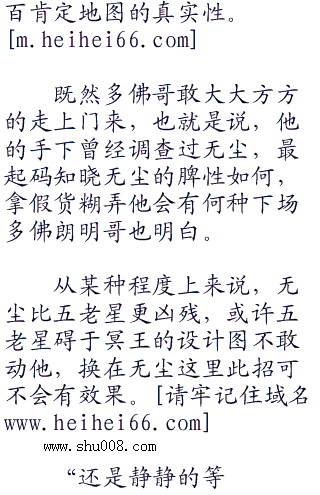 百肯定地图的真实性。
[m.heihei66.com]
既然多佛哥敢大大方方
的走上门来，也就是说，他
的手下曾经调查过无尘，最
起码知晓无尘的脾性如何，
拿假货糊弄他会有何种下场
多佛朗明哥也明白。
从某种程度上来说，无
尘比五老星更凶残，或许五
老星碍于冥王的设计图不敢
动他，换在无尘这里此招可
不会有效果。[请牢记住域名
www.heihei66.com]
www.shu008.com
“还是静静的等